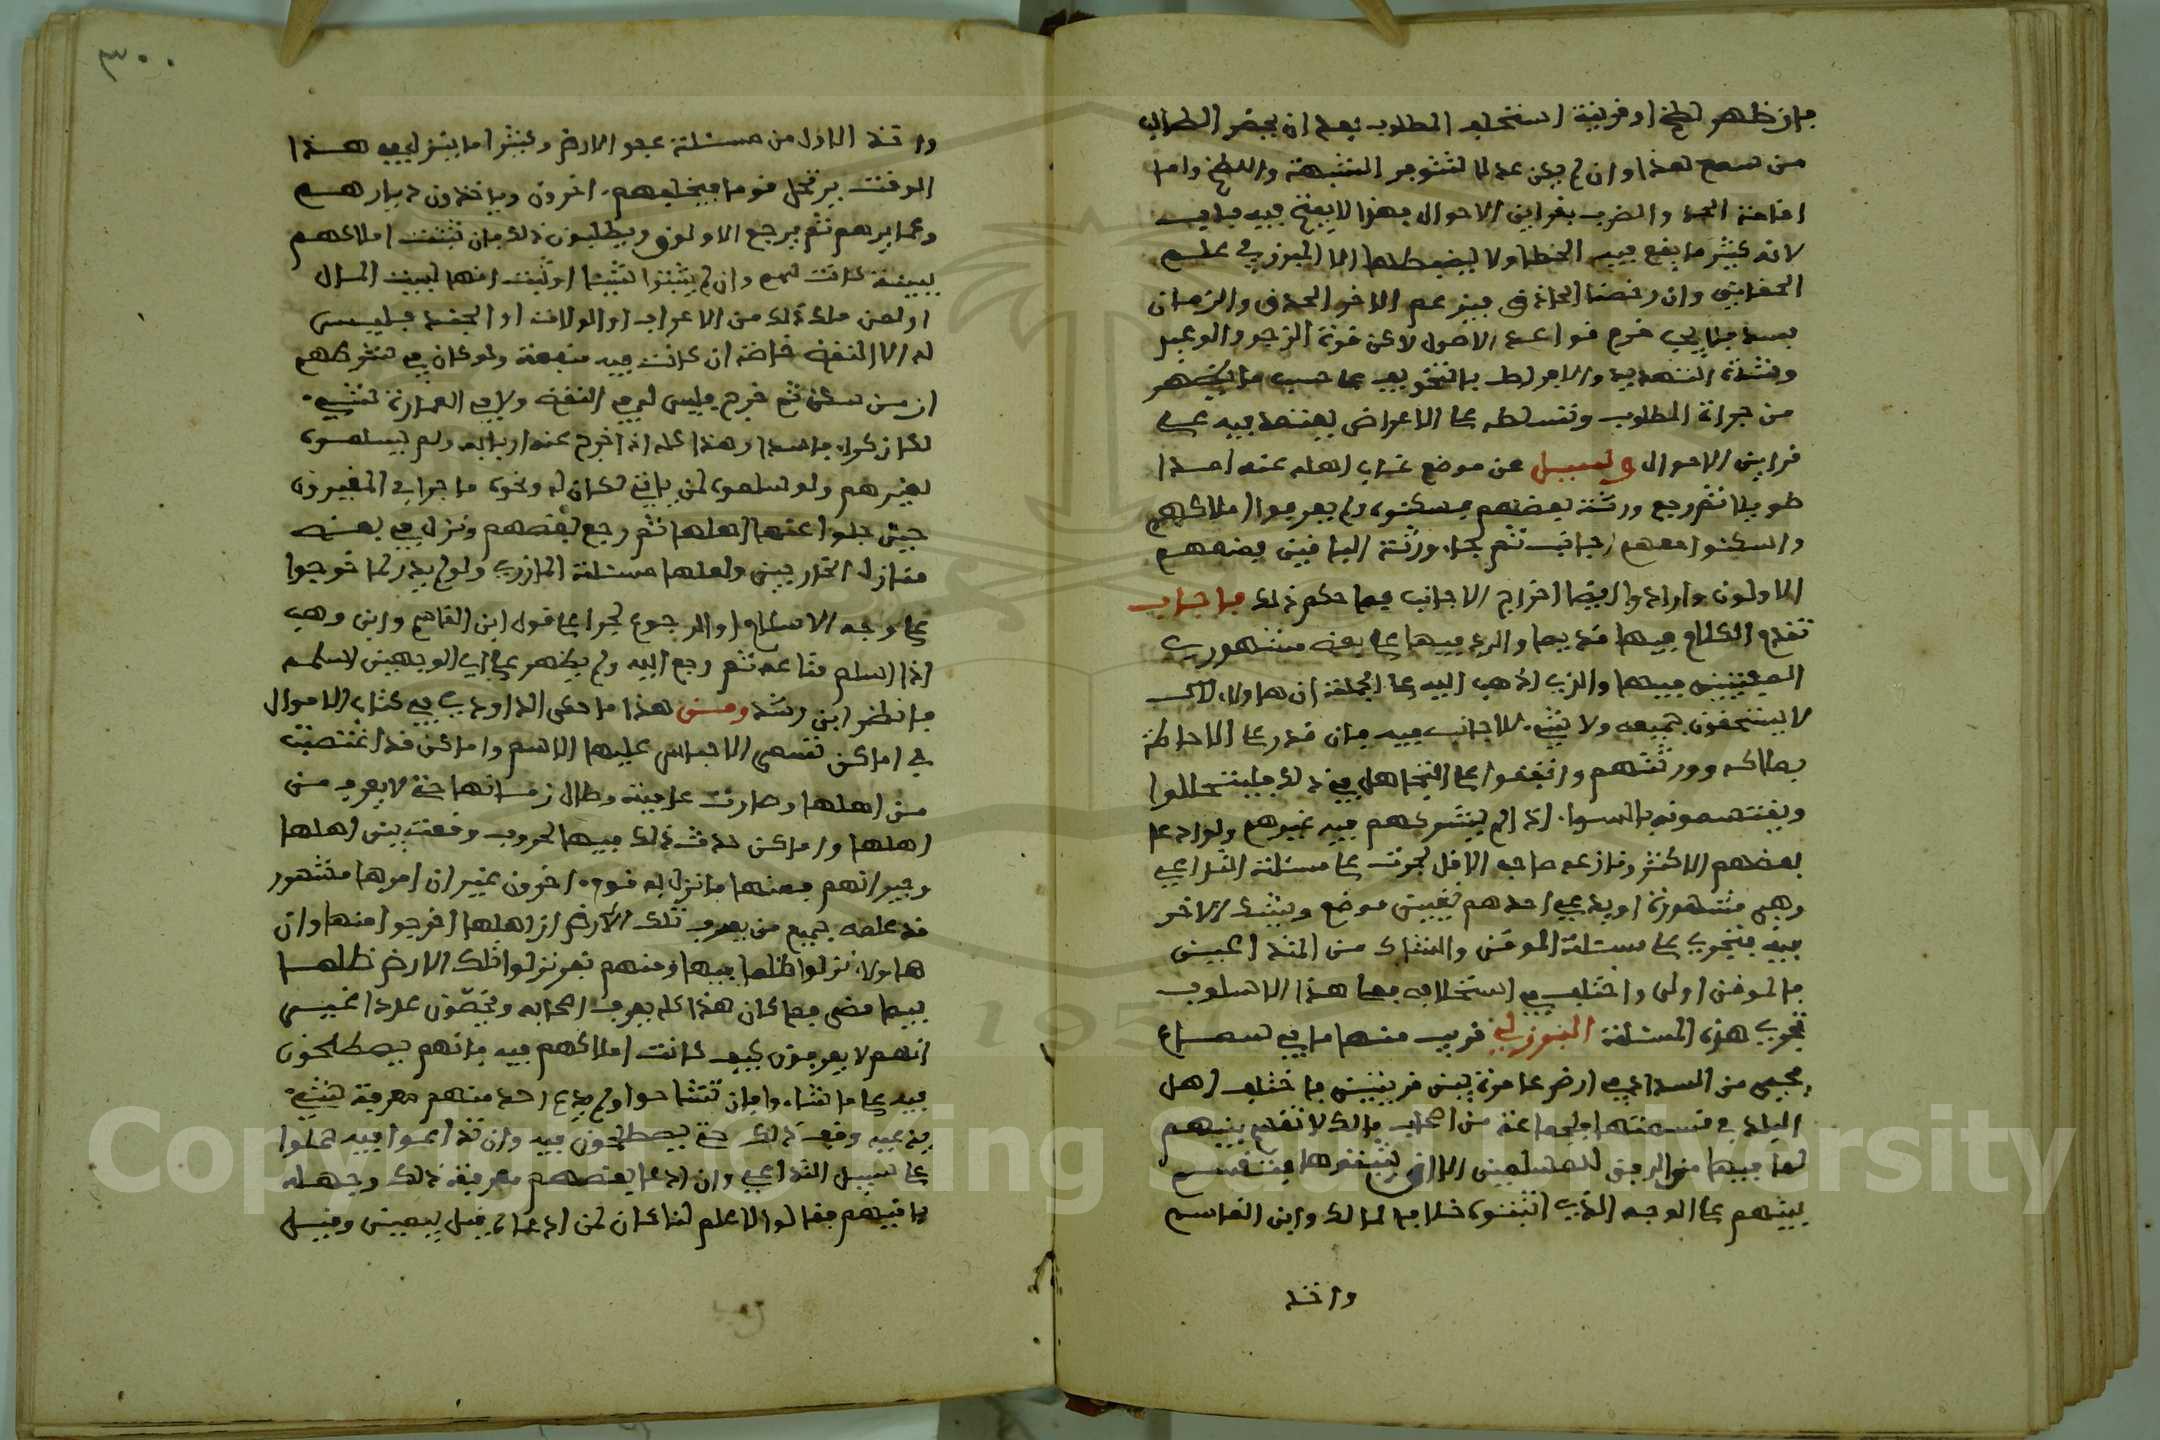 فإن ظهر لطخ او قرينة استحلف المطلوب بعد ان يحضر الطالب
من سمع هذا وان لم يكن عدلا لتتوجه الشبهة واللطخ واما
اقامة الحد والضرب بقراين الاحوال فهذا لا يفتح فيه باب
لانه كثير ما يقع فيه الخطا ولا يضبطها الا المبرز في علم
الحقايق وان رخصنا لحاذق فيزعم الاخر الحذق والزمان
فسد فيالي خرم قواعد الاصول لاكن قوة الزجر والوعيد
وشدة التهديد والافراط بالتخويف على حسب ما يظهر
من جراة المطلوب وتسلطه على الاعراض يعتمد فيه على
قراين الاحوال وسيل عن موضع غاب اهله عنه امدا
طويلا ثم رجع ورثة بعضهم فسكنوه ولم يعرفوا املاكهم
واسكنوا معهم اجانب ثم جاء ورثة الباقين فمنعهم
الاولون وارادوا ايضا اخراج الاجانب فما حكم ذلك فاجاب
تقدم الكلام فيها قديما والرد فيها على بعض مشهوري
المفتيين فيها والذي اذهب اليه على الجملة ان هاولاء لاك
لا يستحقون جميعه ولا شيء للاجانب فيه فان قدر على الاحاطة
بملاكه وورثتهم واتفقوا على التجاهل في ذلك فليتحللوا
ويقتسمونه بالسواء اذا لم يشركهم فيه غيرهم ولو ادعا
بعضهم الاكثر ونازعه صاحب الاقل لجرت على مسئلة التداعي
وهي مشهورة او يدعي احدهم تعيين موضع ويشك الاخر
فيه فتجري على مسئلة الموقن والشاك من المتداعيين
فالموقن اولى واختلف في استحلافه فعلى هذا الاسلوب
تجري هذه المسئلة البرزلي قريب منها ما في سماع
يحيى من السداد في ارض عامرة بين قريتين فاختلف اهل
البلد في قسمتها فلجماعة من اصحاب مالك لا تقسم بينهم
لما فيها من الرفق للمسلمين الا ان يثبتوها فتقسم
بينهم على الوجه الذي اثبتوه خلافا لمالك وابن القاسم
واخذ
٣٠٠
واخذ الاول من مسئلة عفو الارض وكثيرا ما ينزل في هذا
الوقت يرتحل قوم فيخلفهم اخرون وياخذون ديارهم
وعمايرهم ثم يرجع الاولون ويطلبون ذلك فان ثبتت املاكهم
ببينة كانت لهم وان لم يثبتوا شيئا او ثبت انها لبيت المال
او لمن ملك ذلك من الاعراب او الولاة او الجند فليس
له الا النقض خاصة ان كانت فيه منفعة ولو كان في شرطهم
ان من سكن ثم خرج فليس له في النقض ولا في العمارة شيء
لكان كراء فاسدا وهذا كله اذا خرج عنه اربابه ولم يسلموه
لغيرهم ولو سلموه لمن ياتي لكان له ونحوه ما جرا في القيروان
حين جلوا عنها اهلها ثم رجع بعضهم ونزل في بعض
منازل الخارجين ولعلها مسئلة المازري ولو لم يدر لما خرجوا
على وجه الاسلام او الرجوع لجرا على قول ابن القاسم وابن وهب
اذا اسلم متاعه ثم رجع اليه ولم يظهر على اي الوجهين لاسلم
فانظر ابن رشد ومن هذا ما حكى الداودي في كتاب الاموال
في اماكن تسمى الاحباس عليها الاسم واماكن قد اغتصبت
من اهلها وصارت عافية وطال زمانها حتى لا يعرف من
اهلها واماكن حدث ذلك فيها لحروب وقعت بين اهلها
وجيرانهم فمنها ما نزل به قوم اخرون غير ان امرها مشهور
قد علمه جميع من يعرف تلك الارض ان اهلها اخرجوا منها وان
هاولاء نزلوا ظلما فيها ومنهم نفر نزلوا تلك الارض ظلما
فيما مضى فما كان هذا كله يعرف اصحابه ويحصون عددا غير
انهم لا يعرفون كيف كانت املاكهم فيه فانهم يصطلحون
فيه على ما شاء وا فان تشاحوا ولم يدع احد منهم معرفة شيء
يدعيه وقف ذلك حتى يصطلحون فيه وان تداعوا فيه حملوا
على سبيل التداعي وان ادعا بعضهم معرفة ذلك وجهله
باقيهم فقالوا لا علم لنا كان لمن ادعا لم قيل بيمين وقيل